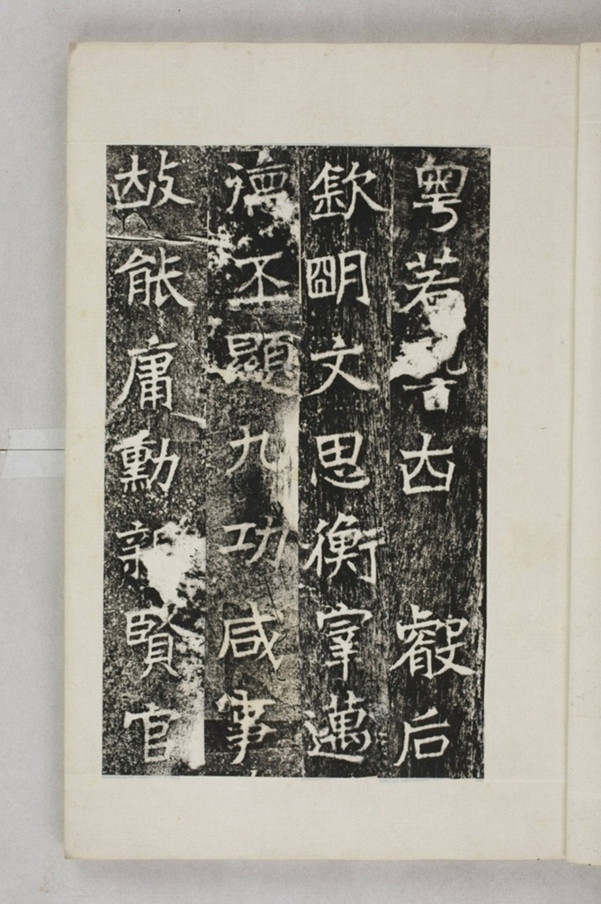 粵若稽古 叡后
欽朙文思衡宰邁
德丕顯九功咸事
故能庸勳親賢官